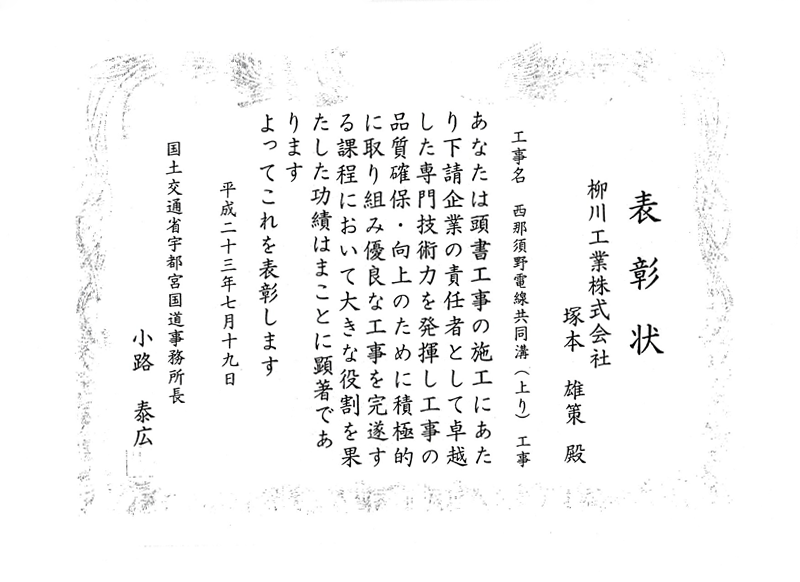 表彰状
柳川工業株式会社
塚本 雄策 殿
工事名 西那須野電線共同溝(上り)工事
あなたは頭書工事の施工にあた
り下請企業の責任者として卓越
した専門技術力を発揮し工事の
品質確保・向上のために積極的
に取り組み優良な工事を完遂す
る課程において大きな役割を果
たした功績はまことに顕著であ
ります
よってこれを表彰します
平成二十三年七月十九日
国土交通省宇都宮国道事務所長
小路 泰広